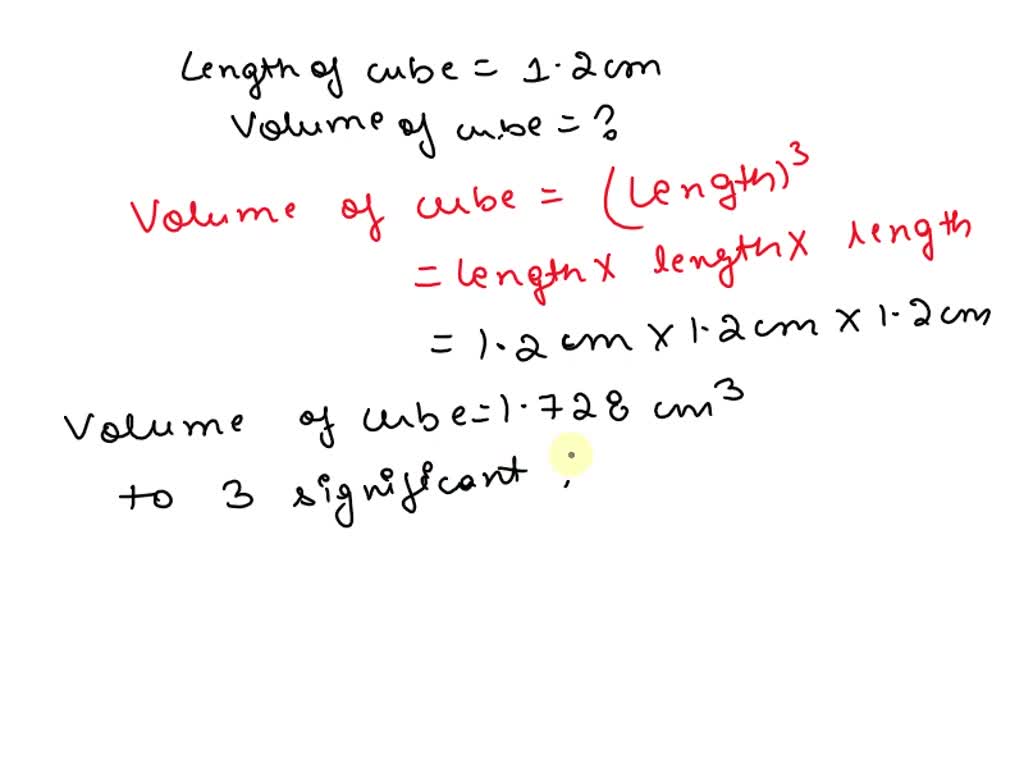 Length of cube = 1.2cm
Volume of cube = ?
Volume of cube = (Length)³
= Length × length × length
= 1.2 cm × 1.2cm × 1.2cm
Volume of cube = 1.728 cm³
to 3 significant